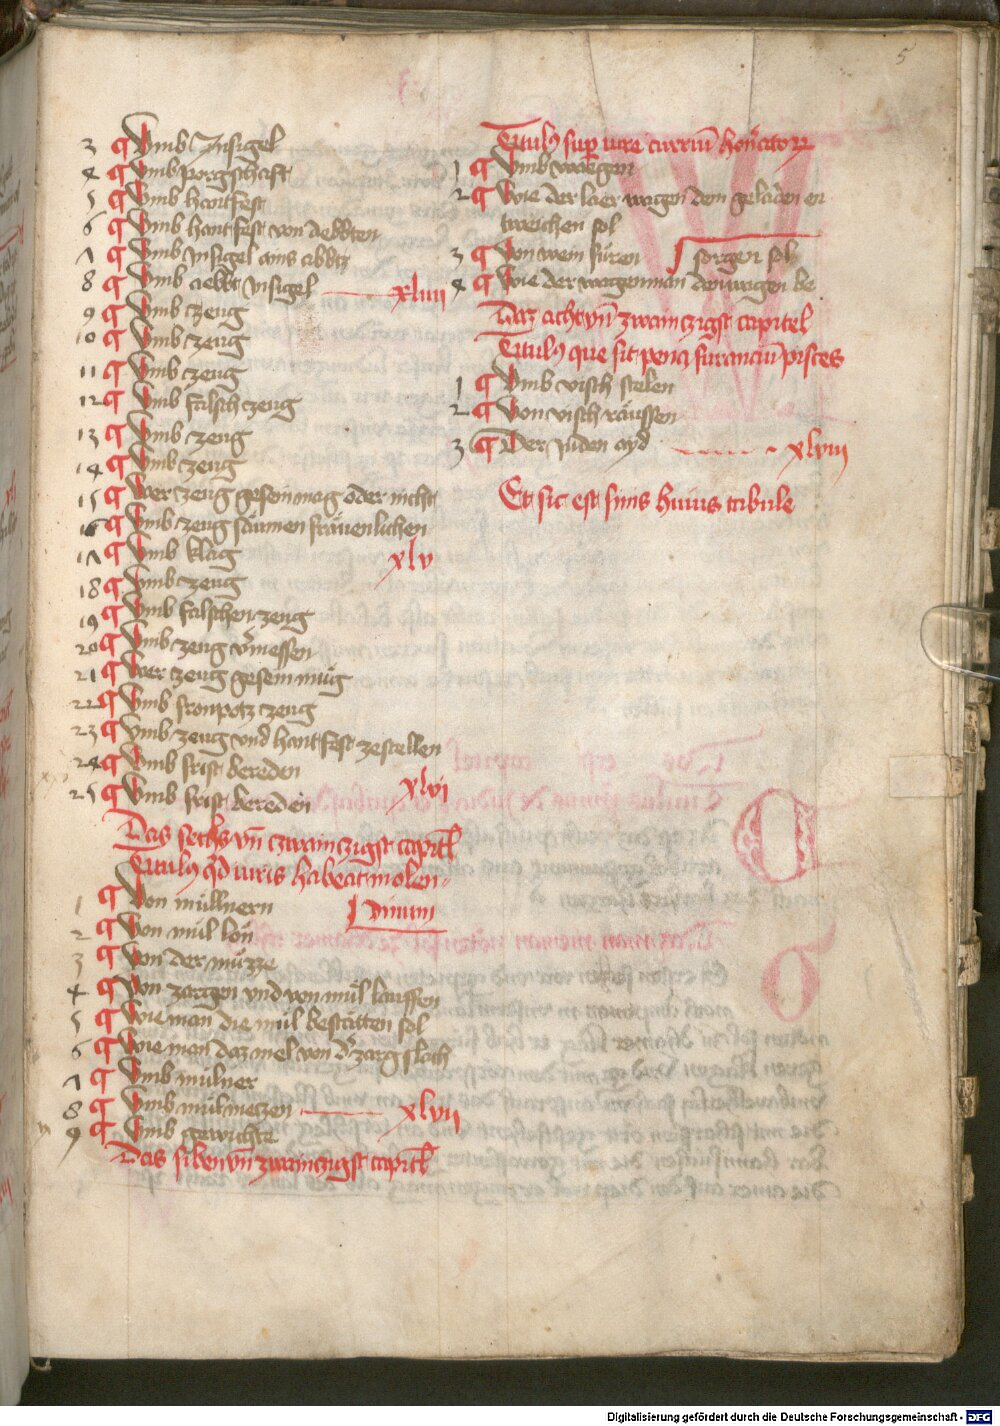 5
3 ¶ Vmb Insigel
4 ¶ Vmb porgschaft
5 ¶ Vmb hantfest
6 ¶ Vmb hantfest von aebbten
7 ¶ Vmb Insigel ains abbts
8 ¶ Vmb aebbt Insigel xliiii
9 ¶ Vmb czeug
10 ¶ Vmb czeug
11 ¶ Vmb czeug
12 ¶ Vmb falsch czeug
13 ¶ Vmb czeug
14 ¶ Vmb czeug
15 ¶ Wer czeug gesein mag oder nicht
16 ¶ Vmb czeug saumen fräuenlichen
17 ¶ Vmb klag xlv
18 ¶ Vmb czeug
19 ¶ Vmb falschen czeug
20 ¶ Vmb czeug v̄messen
21 ¶ Wer czeug gesein müg
22 ¶ Vmb fronpotz czeug
23 ¶ Vmb zeug vnd hantfest zestellen
24 ¶ Vmb frist bereden
25 ¶ Vmb frist bereden xlvi
Das sechs vn̄ czwainczigst capitl
Titulus qd iuris habeat molen-
dinum
1 ¶ Von müllnern
2 ¶ Von mül lon
3 ¶ Von der müzze
4 ¶ Von zargen vnd von mül lauffen
5 ¶ Wie man die mül bestätten sol
6 ¶ Wie man daz mel von d' zarg slach
7 ¶ Vmb mülner
8 ¶ Vmb mülmetzen xlvii
9 ¶ Vmb gewichte
Das siben vn̄ zwainczigst capitl
Titulus super iure curruū honerator
1 ¶ Vmb waegen
2 ¶ Wie der laer wagen dem geladen en
tweichen sol
3 ¶ Von wein füren
4 ¶ Wie der wagenman den wagen be
sorgen sol
Daz acht vn̄ zwainczigst capitel
Titulus que sit pena furanciū pisces
1 ¶ Vmb visch stelen
2 ¶ Von visch räussen
3 ¶ Der Juden ayd xlviii
Et sic est finis huius tabule
Digitalisierung gefördert durch die Deutsche Forschungsgemeinschaft - DFG